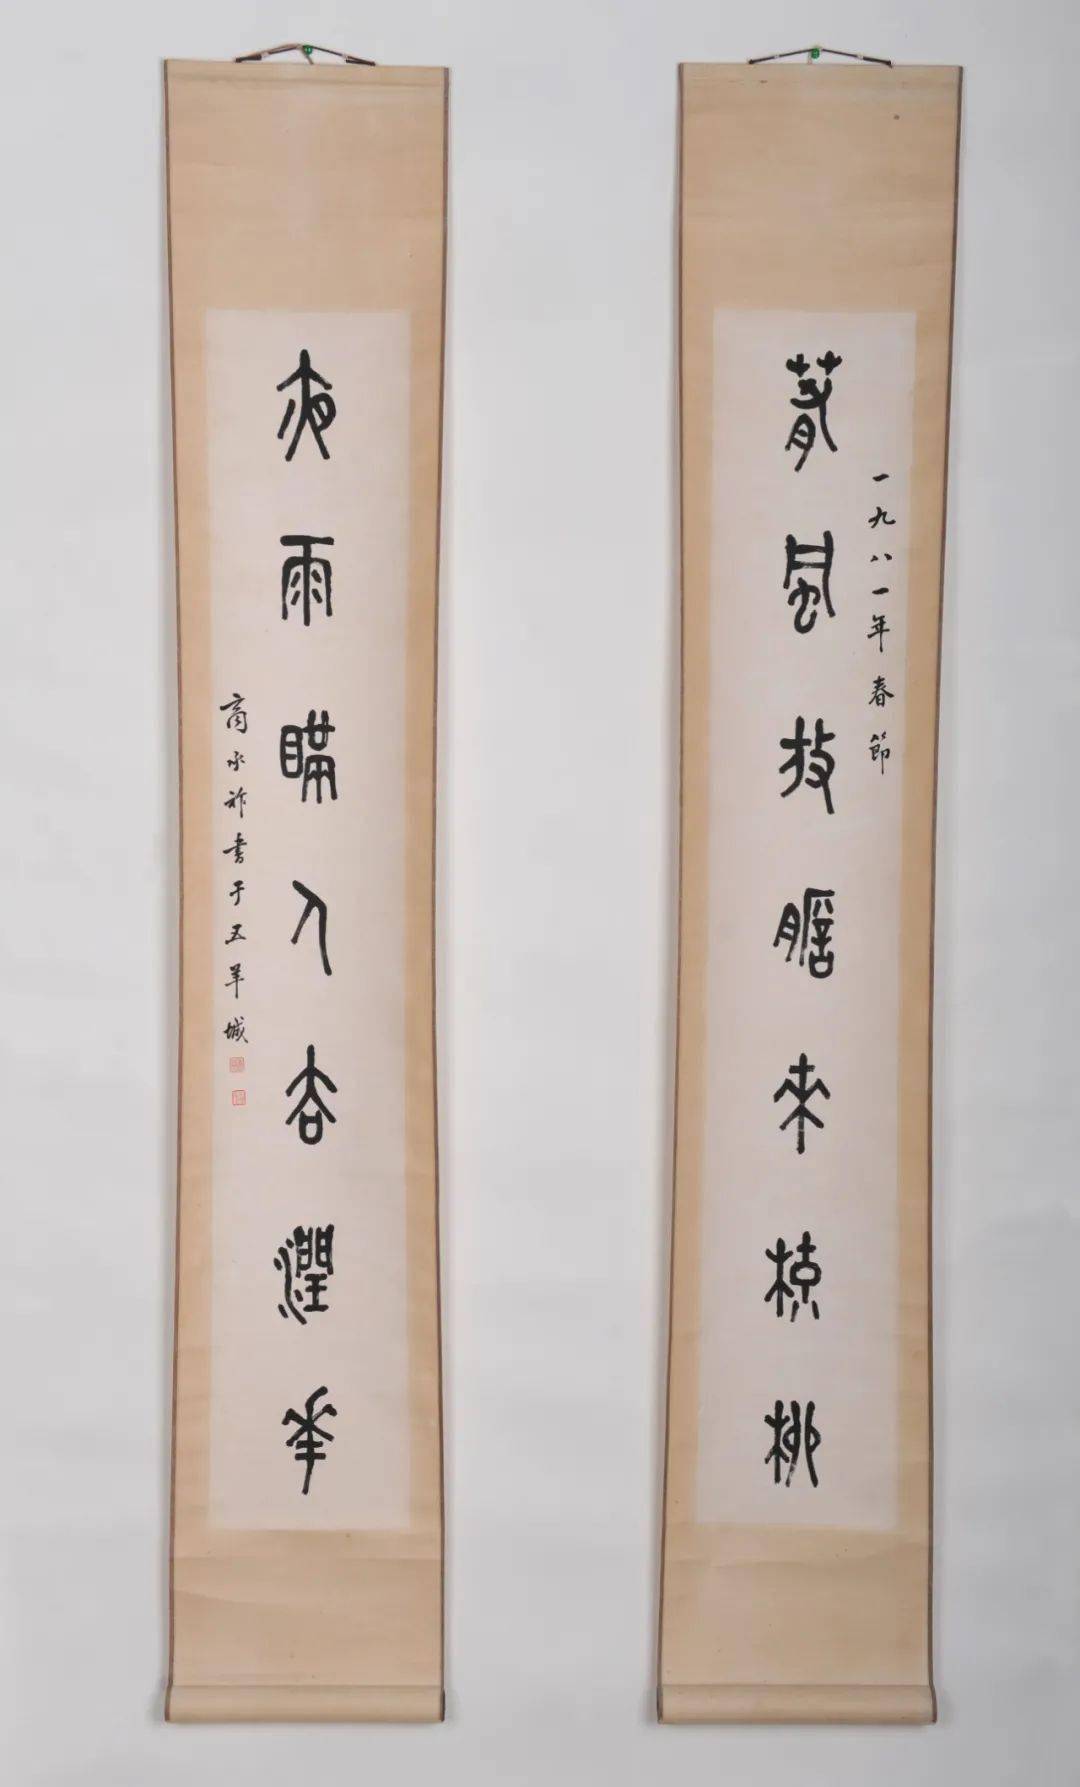 春風放膽來梳柳
一九八一年春節
夜雨瞞人去潤華
商承祚書于五羊城